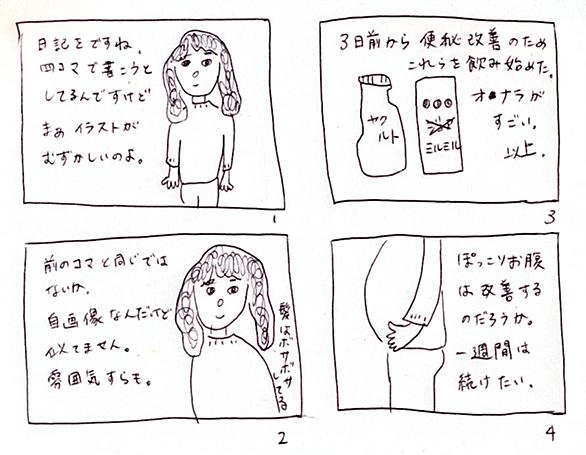 日記をですね、
四コマで書こうと
してるんですけど
まぁイラストが
むずかしいのよ。
1
前のコマと同じでは
ないか。
自画像なんだけど
似てません。
雰囲気すらも。
髪はボサボサしてる
2
3日前から便秘改善のため
これらを飲み始めた。
ヤクルト
ミルミル
オナラが
すごい。
以上。
3
ぽっこりお腹
は改善する
のだろうか。
一週間は
続けたい。
4